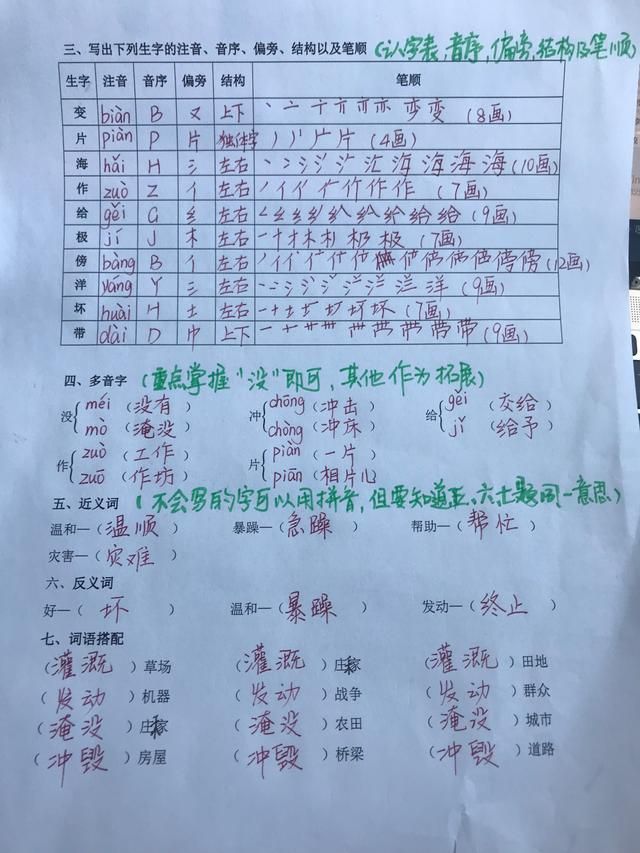 三、写出下列生字的注音、音序、偏旁、结构以及笔顺 (认字表,音序,偏旁,结构及笔顺)
生字 注音 音序 偏旁 结构 笔顺
变 biàn B 又 上下 变 (8画)
片 piàn P 片 独体字 片 (4画)
海 hǎi H 氵 左右 海 (10画)
作 zuò Z 亻 左右 作 (7画)
给 gěi G 纟 左右 给 (9画)
极 jí J 木 左右 极 (7画)
傍 bàng B 亻 左右 傍 (12画)
洋 yáng Y 氵 左右 洋 (9画)
坏 huài H 土 左右 坏 (7画)
带 dài D 巾 上下 带 (9画)
四、多音字 (重点掌握"没"即可,其他作为拓展)
没 méi (没有) mò (淹没) 冲 chōng (冲击) chòng (冲床) 给 gěi (交给) jǐ (给予)
作 zuò (工作) zuō (作坊) 片 piàn (一片) piān (相片儿)
五、近义词 (不会写的字可以用拼音,但要知道五、六大题同一意思)
温和—(温顺) 暴躁—(急躁) 帮助—(帮忙)
灾害—(灾难)
六、反义词
好—(坏) 温和—(暴躁) 发动—(终止)
七、词语搭配
(灌溉)草场 (灌溉)庄稼 (灌溉)田地
(发动)机器 (发动)战争 (发动)群众
(淹没)庄稼 (淹没)农田 (淹没)城市
(冲毁)房屋 (冲毁)桥梁 (冲毁)道路